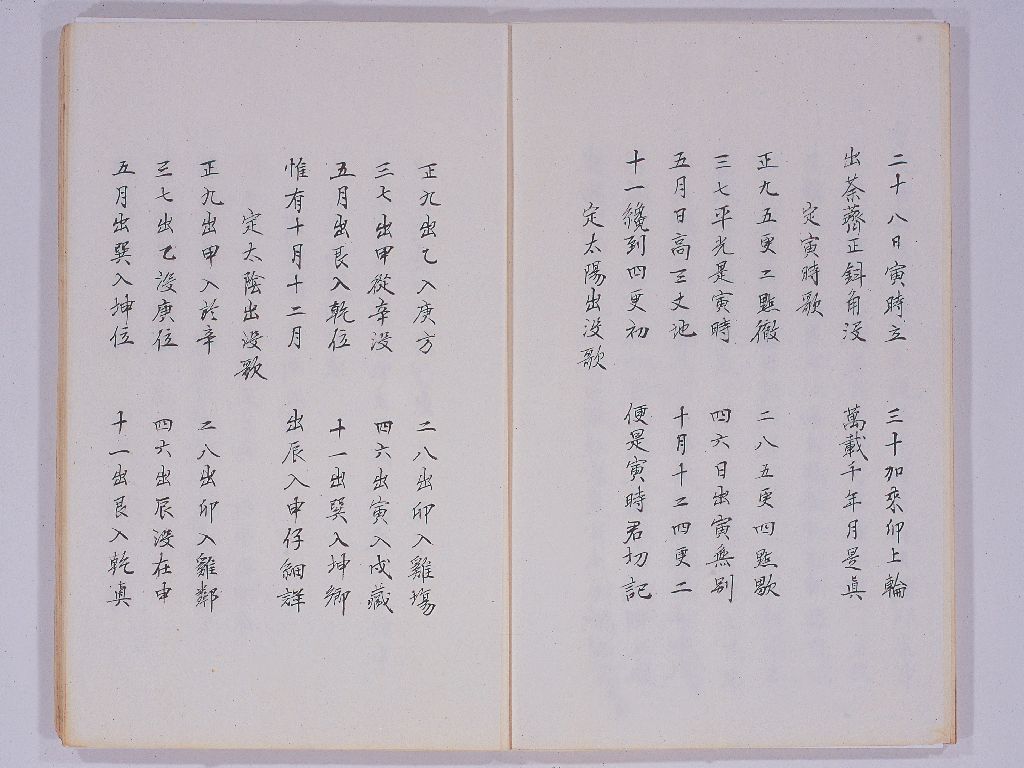 二十八日寅時立　三十加來卯上輪
出荼薺正斜角沒　萬載千年月是眞
定寅時歌
正九五更二㸃徹　二八五更四㸃歇
三七平光是寅時　四六日出寅無别
五月日高三丈地　十月十二四更二
十一纔到四更初　便是寅時君切記
定太陽出没歌
正九出乙入庚方　二八出卯入雞塲
三七出甲從辛没　四六出寅入戌藏
五月出艮入乾位　十一出巽入坤鄉
惟有十月十二月　出辰入申仔細詳
定太陰出没歌
正九出甲入於辛　二八出卯入雞鄰
三七出乙没庚位　四六出辰没在申
五月出巽入坤位　十一出艮入乾眞